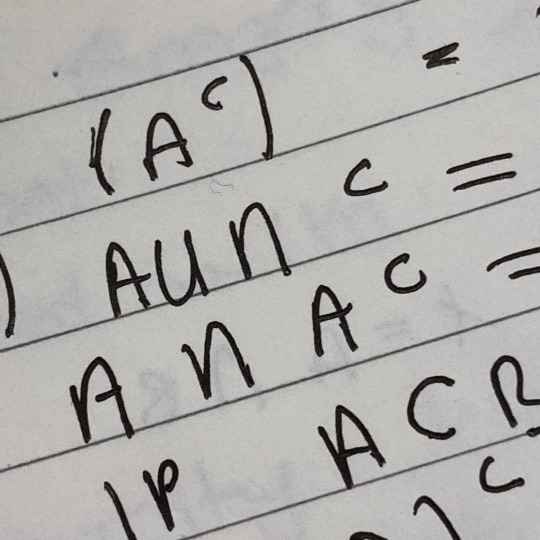 (Aᶜ) =
) A∪∩ ᶜ =
A ∩ Aᶜ =
IP A⊂B
)ᶜ